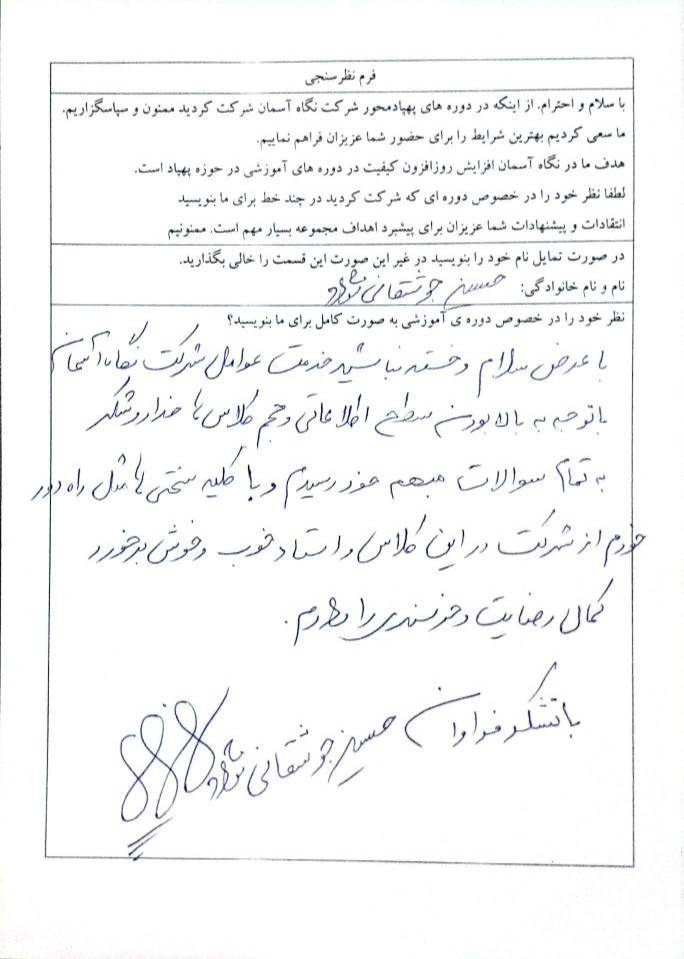 فرم نظرسنجی
با سلام و احترام. از اینکه در دوره های پهپادمحور شرکت نگاه آسمان شرکت کردید ممنون و سپاسگزاریم.
ما سعی کردیم بهترین شرایط را برای حضور شما عزیزان فراهم نماییم.
هدف ما در نگاه آسمان افزایش روزافزون کیفیت در دوره های آموزشی در حوزه پهپاد است.
لطفا نظر خود را در خصوص دوره ای که شرکت کردید در چند خط برای ما بنویسید
انتقادات و پیشنهادات شما عزیزان برای پیشبرد اهداف مجموعه بسیار مهم است. ممنونیم
در صورت تمایل نام خود را بنویسید در غیر این صورت این قسمت را خالی بگذارید.
نام و نام خانوادگی: حسین جوشقانی
نظر خود را در خصوص دوره ی آموزشی به صورت کامل برای ما بنویسید؟
با عرض سلام و خسته نباشید خدمت عوامل شرکت نگاه آسمان
باتوجه به بالا بودن سطح اطلاعاتی و حجم کلاس ها خدا رو شکر
به تمام سوالات مبهم خود رسیدم و با کلیه سختی ها مثل راه دور
خودم از شرکت در این کلاس و استاد خوب و خوش برخورد
کمال رضایت و خرسندی را دارم.
با تشکر فراوان حسین جوشقانی